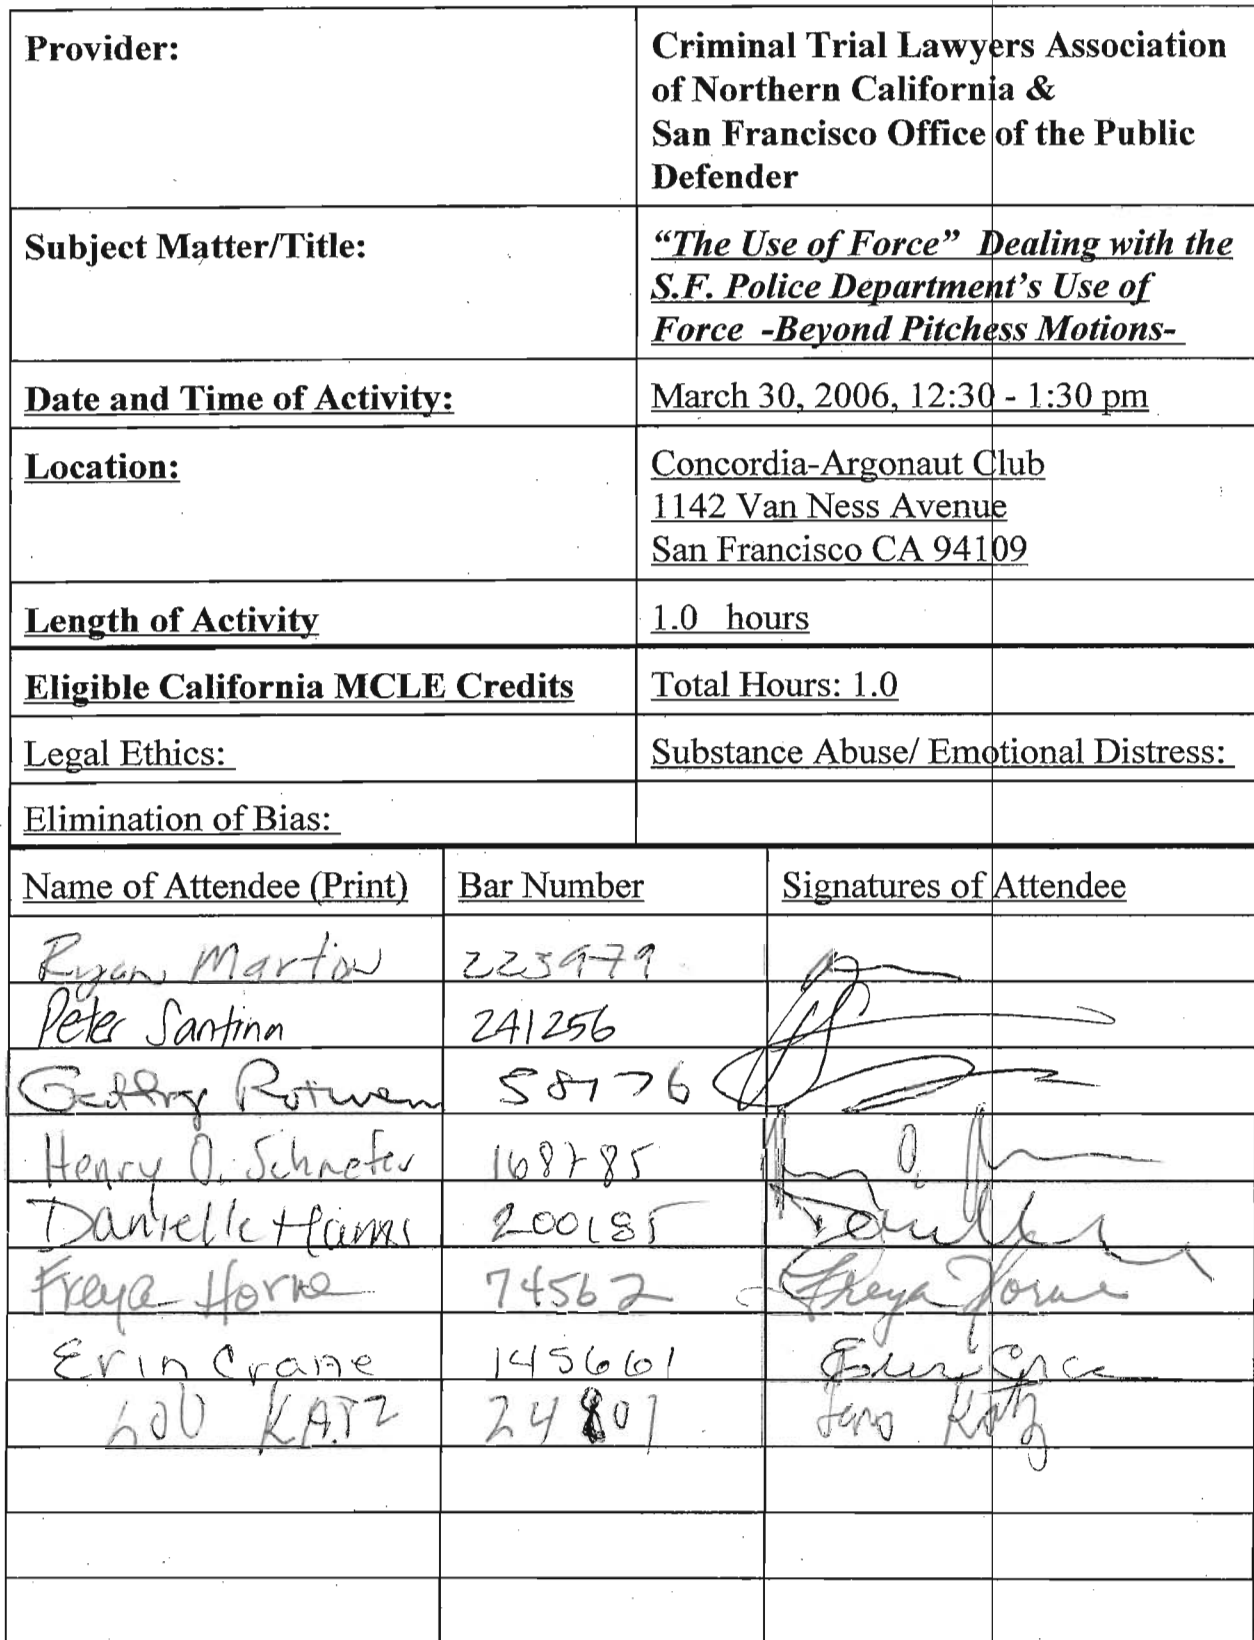 Provider:
Criminal Trial Lawyers Association
of Northern California &
San Francisco Office of the Public
Defender
Subject Matter/Title:
“The Use of Force” Dealing with the
S.F. Police Department’s Use of
Force -Beyond Pitchess Motions-
Date and Time of Activity:
March 30, 2006, 12:30 - 1:30 pm
Location:
Concordia-Argonaut Club
1142 Van Ness Avenue
San Francisco CA 94109
Length of Activity
1.0 hours
Eligible California MCLE Credits
Total Hours: 1.0
Legal Ethics:
Substance Abuse/ Emotional Distress:
Elimination of Bias:
Name of Attendee (Print) Bar Number Signatures of Attendee
Ryan Martin 223979
Peter Santina 241256
Rotwein 58176
Henry O. Schaefer 168785
Danielle Harris 200185
Freya Horne 74562 Freya Horne
Erin Crane 145661 Erin Crane
LOU KATZ 24801 Katz